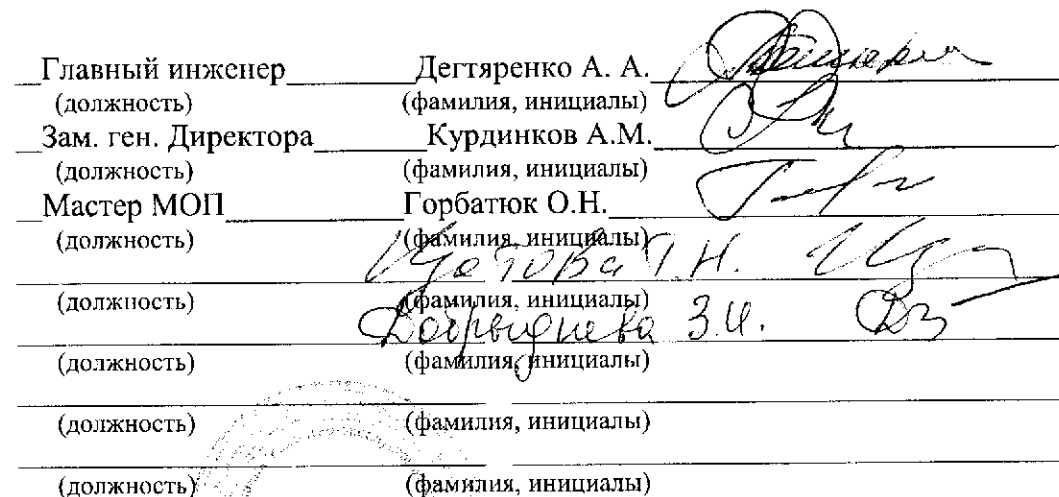 Главный инженер Дегтяренко А. А.
(должность) (фамилия, инициалы)
Зам. ген. Директора Курдинков А.М.
(должность) (фамилия, инициалы)
Мастер МОП Горбатюк О.Н.
(должность) (фамилия, инициалы)
Т.Н.
(должность) (фамилия, инициалы)
З.И.
(должность) (фамилия, инициалы)
(должность) (фамилия, инициалы)
(должность) (фамилия, инициалы)